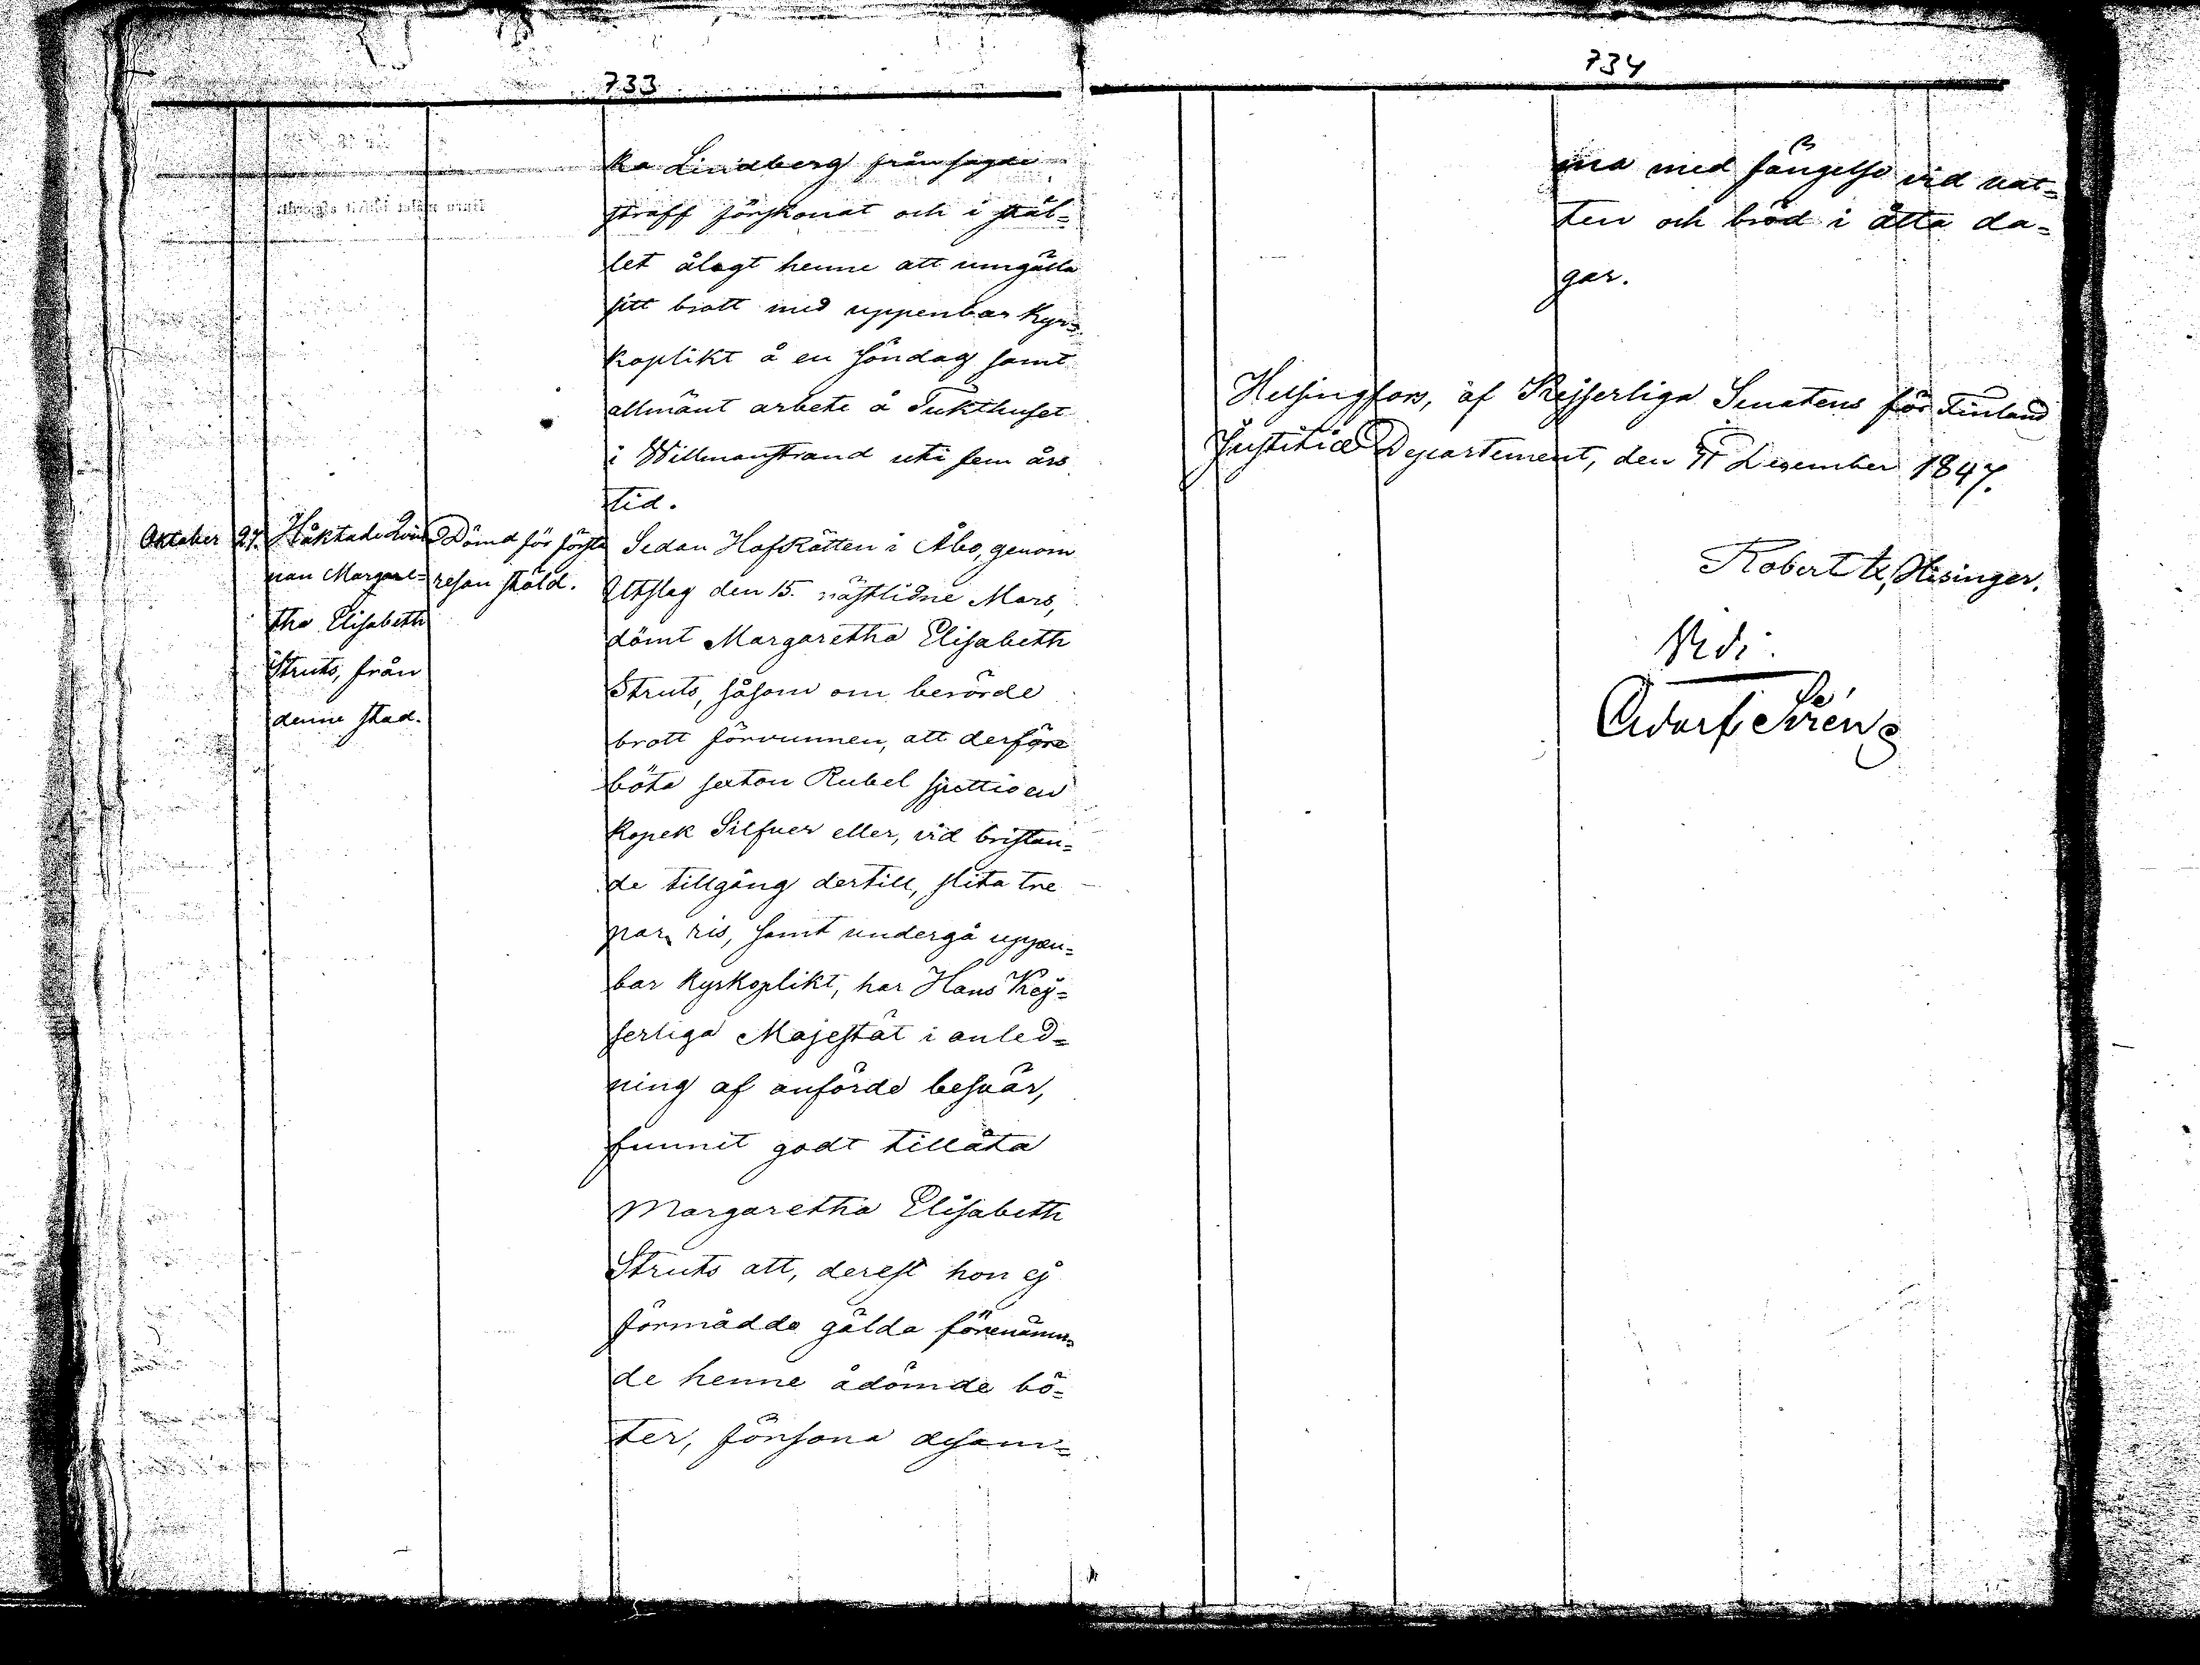 733
ka Lindberg från sagde
straff förskonat och i stäl=
let ålagt henne att umgälla
sitt brott med uppenbar kyr=
koplikt å en söndag samt
allmänt arbete å Tukthuset
i Willmanstrand uti fem års
tid.
Oktober 27.
Häktade Qvin=
nan Margare=
tha Elisabeth
Struts, från
denne stad.
Dömd för första
resan stöld.
Sedan HofRätten i Åbo, genom
Utslag den 15. nästlidne Mars,
dömt Margaretha Elisabeth
Struts, såsom om berörde
brott förvunnen, att derföre
böta sexton Rubel sjuttioen
kopek Silfver eller, vid bristan=
de tillgång dertill, slita tre
par ris, samt undergå uppen=
bar kyrkoplikt, har Hans Kej=
serliga Majestät i anled=
ning af anförde besvär,
funnit godt tillåta
Margaretha Elisabeth
Struts att, derest hon ej
förmådde gälda förenämn=
de henne ådömde bö=
ter, försona desam=
734
ma med fängelse vid vat=
ten och bröd i åtta da=
gar.
Helsingfors, af Kejserliga Senatens för Finland
Justitiæ Departement, den Dezember 1847.
Robert Hisinger.
Vidi.